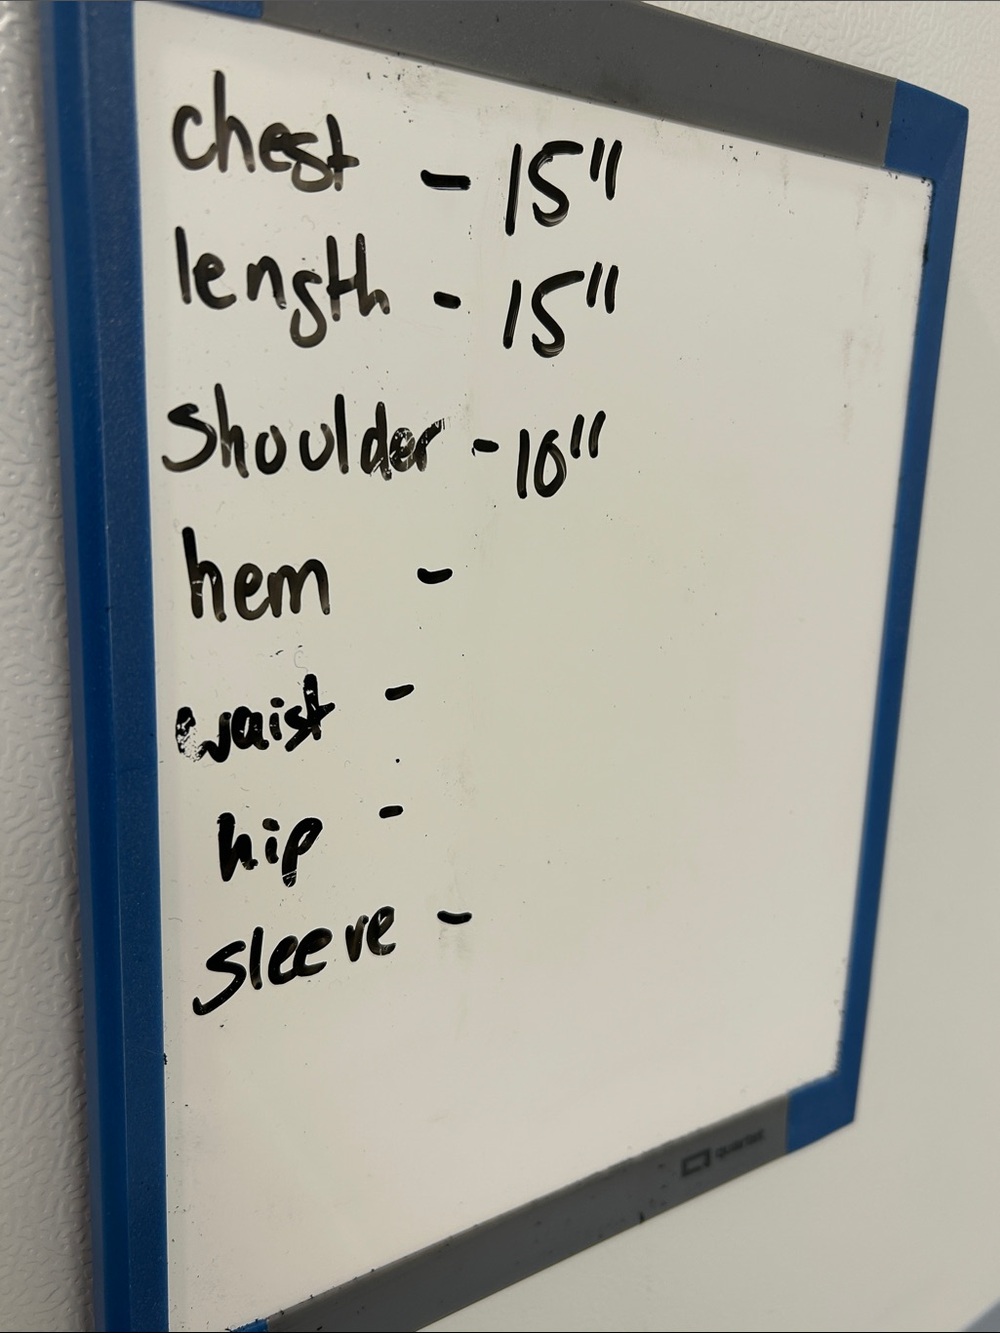 chest - 15"
length - 15"
shoulder - 10"
hem -
waist -
hip -
sleeve -
quartet